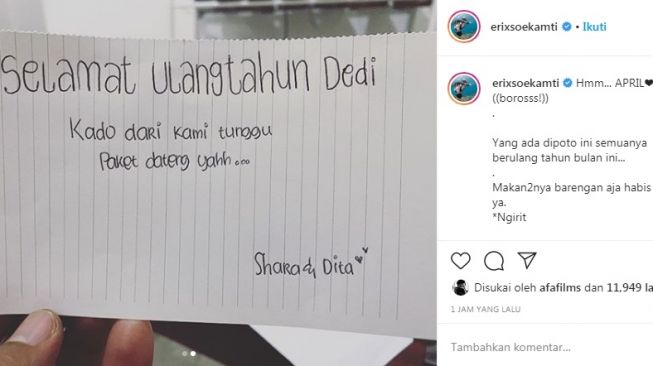 Selamat ulangtahun Dedi
Kado dari kami tunggu
Paket dateng yahh...
Shara & Dita
erixsoekamti • Ikuti
erixsoekamti Hmm... APRIL❤
((borosss!))
.
Yang ada dipoto ini semuanya
berulang tahun bulan ini...
.
Makan2nya barengan aja habis
ya.
*Ngirit
Disukai oleh afafilms dan 11,949 la
1 JAM YANG LALU
Tambahkan komentar...